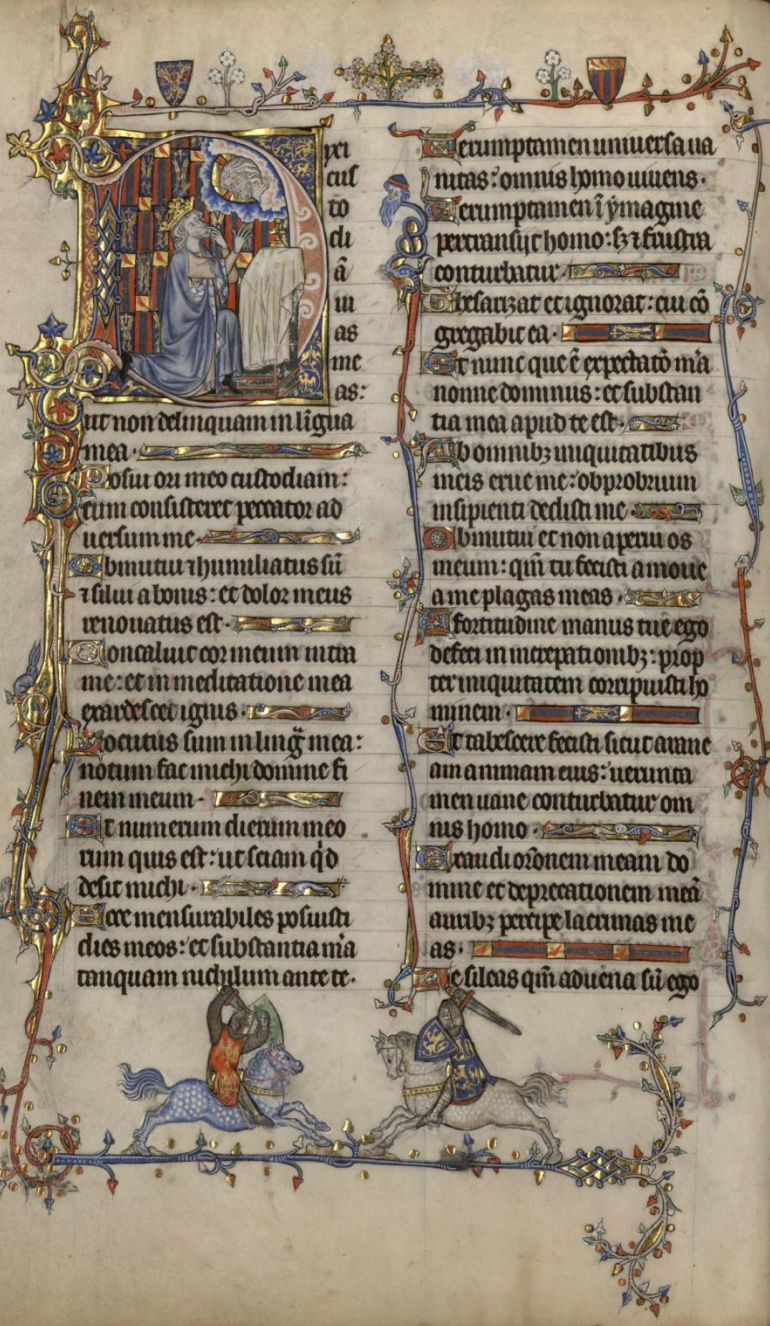 Dixi
cus
to
di
ã
ui
as
me
as:
ut non delinquam in lĩgua
mea.
Posui ori meo custodiam:
cum consisteret peccator ad
uersum me.
Obmutui ⁊ humiliatus sũ
⁊ silui a bonis: et dolor meus
renouatus est.
Concaluit cor meum intra
me: et in meditatione mea
exardescet ignis.
Locutus sum in ling̃ mea:
notum fac michi domine fi
nem meum.
Et numerum dierum meo
rum quis est: ut sciam q̃d
desit michi.
Ecce mensurabiles posuisti
dies meos: et substantia m̃a
tanquam nichilum ante te.
Verumptamen uniuersa ua
nitas: omnis homo uiuens.
Verumptamen ĩ ymagine
pertransijt homo: sꝫ ⁊ frustra
conturbatur.
Thesaurizat et ignorat: cui cõ
gregabit ea.
Et nunc que ẽ expectatõ m̃a
nonne dominus: et substan
tia mea apud te est.
Ab omnibꝫ iniquitatibus
meis erue me: obprobrium
insipienti dedisti me.
Obmutui et non aperui os
meum: qm̃ tu fecisti amoue
a me plagas meas.
A fortitudine manus tue ego
defeci in increpationibꝫ: prop
ter iniquitatem corripuisti ho
minem.
Et tabescere fecisti sicut arane
am animam eius: uerunta
men uane conturbatur om
nis homo.
Exaudi or̃onem meam do
mine et deprecationem meã
auribꝫ percipe lacrimas me
as.
Ne sileas qm̃ aduena sũ ego